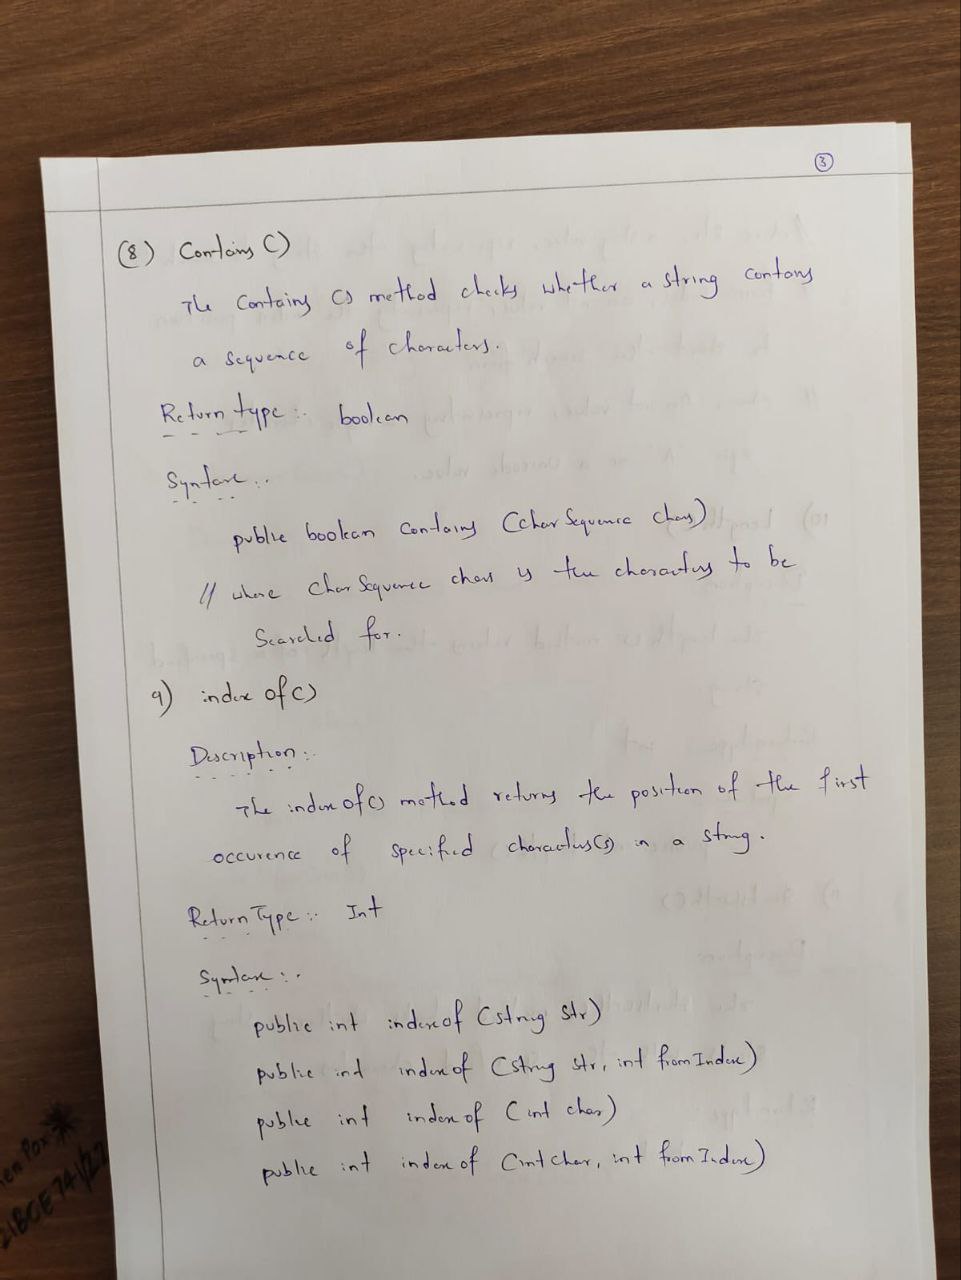 3
(8) Contains ()
The Contains () method checks whether a string contains
a sequence of characters.
Return type :- boolean
Syntax :-
public boolean contains (char Sequence chars)
// where Char Sequence chars is the characters to be
Searched for.
9) index of ()
Description :-
The index of () method returns the position of the first
occurence of specified character(s) in a string.
Return Type :- Int
Syntax :-
public int index of (string str)
public int index of (string str, int from Index)
public int index of (int char)
public int index of (int char, int from Index)